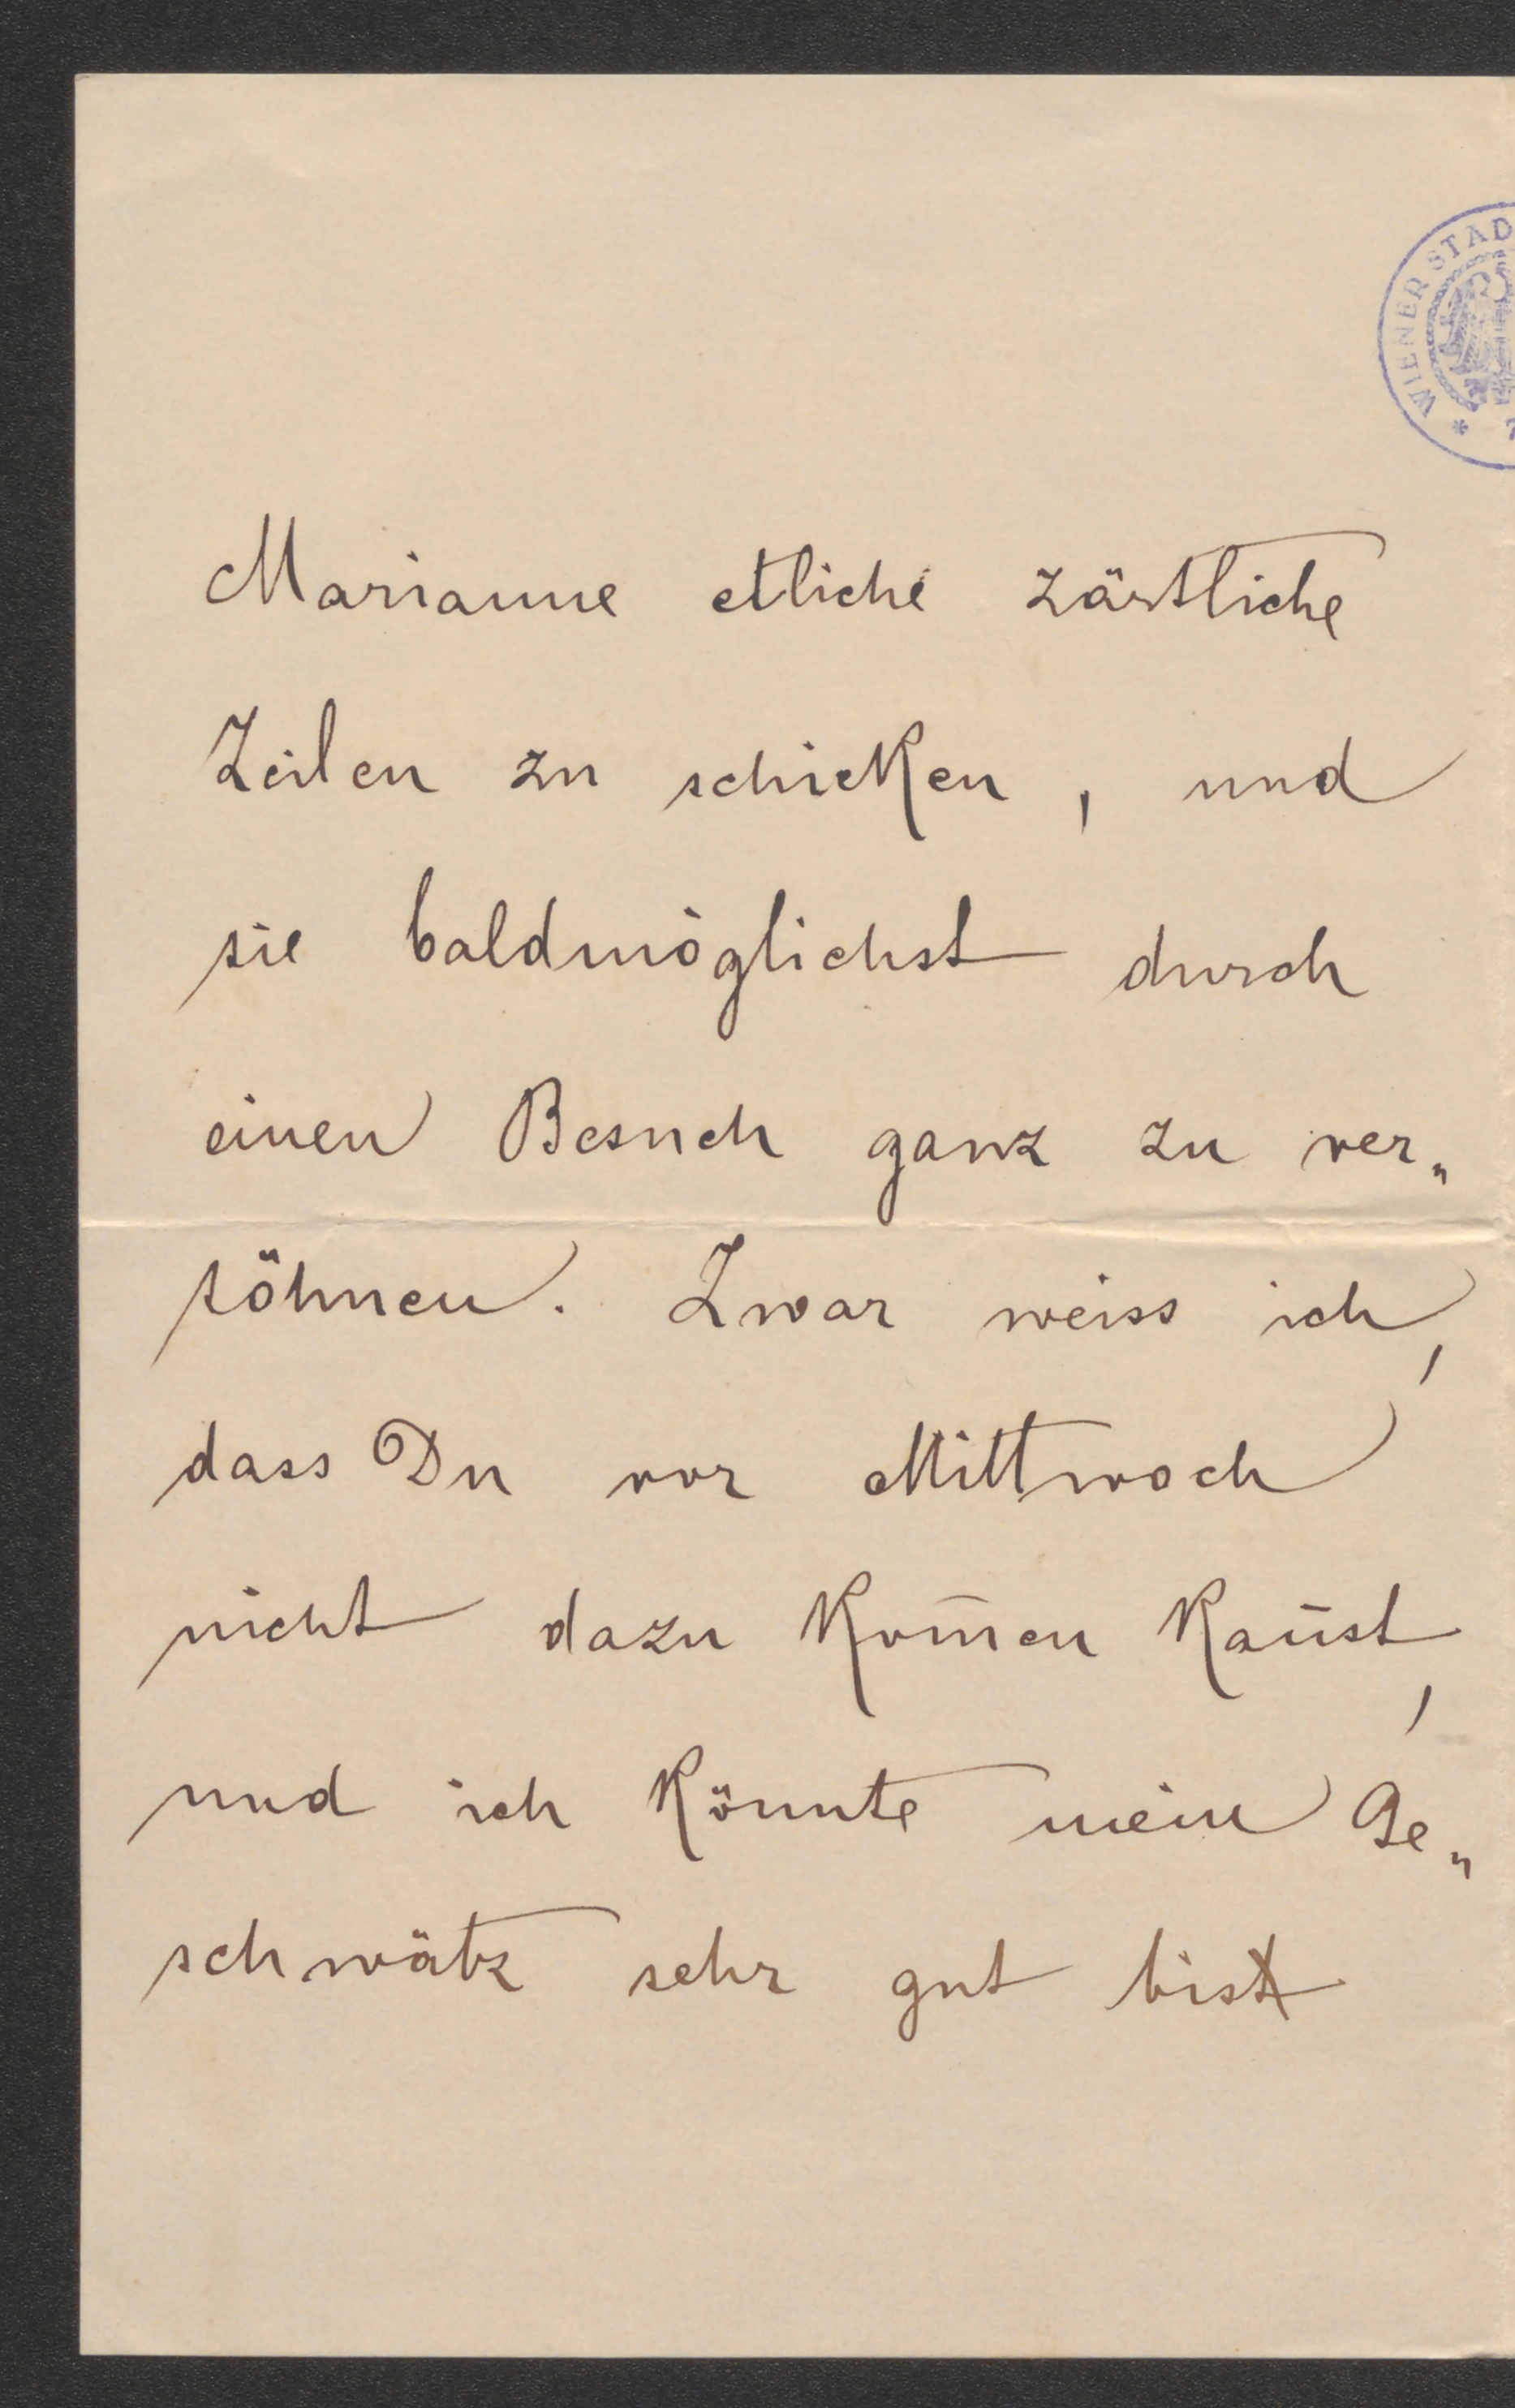 WIENER STAD
Marianne etliche zärtliche
Zeilen zu schicken, und
sie baldmöglichst durch
einen Besuch ganz zu ver„
söhnen. Zwar weiss ich,
dass Du vor Mittwoch
nicht dazu kom̄en kan̄st,
und ich könnte mein Ge„
schwätz sehr gut bis